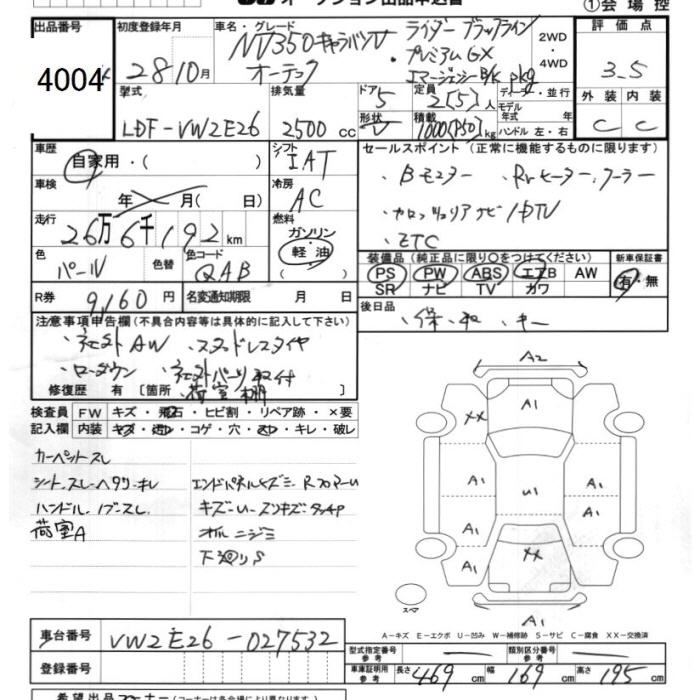 オークション出品申込書 ①会場控
出品番号 初度登録年月 車名・グレード 評価点
4004 28 10月 NV350キャラバンV ライダーブラックライン 2WD・4WD 3.5
オーテック ・プレミアムGX
エマージェンシーB/K pkg 外装 内装
型式 排気量 ドア 定員 ディーラー・並行 C C
LDF-VW2E26 2500 cc 5 2(5)人 モデル年式 年
形状 V 積載 1000(850)kg ハンドル 左・右
車歴 シフト セールスポイント(正常に機能するものに限ります)
自家用・( ) IAT ・Bモニター ・Rrヒーター、クーラー
車検 年 月(日) 冷房 AC ・カロッツェリアナビ/地TV
走行 燃料 ・ETC
26万6千192km ガソリン 軽・油 ( )
色 色替 色コード 装備品(純正品に限り○をつけてください) 新車保証書
パール QAB PS PW ABS エアB AW 有・無
SR ナビ TV カワ
R券 9,160円 名変通知期限 月 日 後日品
注意事項申告欄(不具合内容等は具体的に記入して下さい) ・保・取・キー
・社外AW ・スタッドレスタイヤ
・ローダウン ・社外パーツ取付
修復歴 有 [箇所 荷室棚
検査員 FW キズ・飛石・ヒビ割・リペア跡・×要
記入欄 内装 キズ・汚レ・コゲ・穴・スレ・キレ・破レ
カーペットスレ
シート、スレ・ヘタリ・キレ エンドパネルキズミ Rフロアーu
ハンドル、ノブスレ キズ・u・スリキズタッチP
荷室A オイルニジミ
下廻りS
A2
A1
XX
A1 A1
U1
A1 A1
XX
A1 A1
スペア
A1
A-キズ E-エクボ U-凹み W-補修跡 S-サビ C-腐食 XX-交換済
車台番号 VW2E26-027532
型式指定番号 参考 類別区分番号 参考
登録番号 車庫証明用 参考 長さ 469 cm 幅 169 cm 高さ 195 cm
希望出品コーナー(コーナーは各会場により